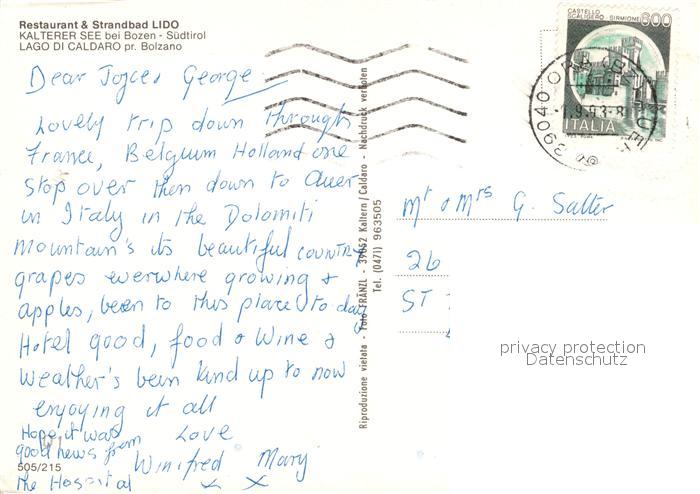 Restaurant & Strandbad LIDO
KALTERER SEE bei Bozen - Südtirol
LAGO DI CALDARO pr. Bolzano
Dear Joyce & George
Lovely trip down through
France, Belgium Holland one
stop over then down to Auer
in Italy in the Dolomiti
mountain's its beautiful COUNTRY
grapes everwhere growing &
apples, been to this place to day
Hotel good, food & wine &
weather's been kind up to now
enjoying it all
Hope it was
good news from
the Hospital
Love
Winifred Mary
X
505/215
Riproduzione vietata - Foto FRÄNZL - 39052 Kaltern / Caldaro - Nachdruck verboten
Tel. (0471) 963505
CASTELLO
SCALIGERO - SIRMIONE
600
ITALIA
39040
Mr & Mrs G. Salter
26
ST
privacy protection
Datenschutz